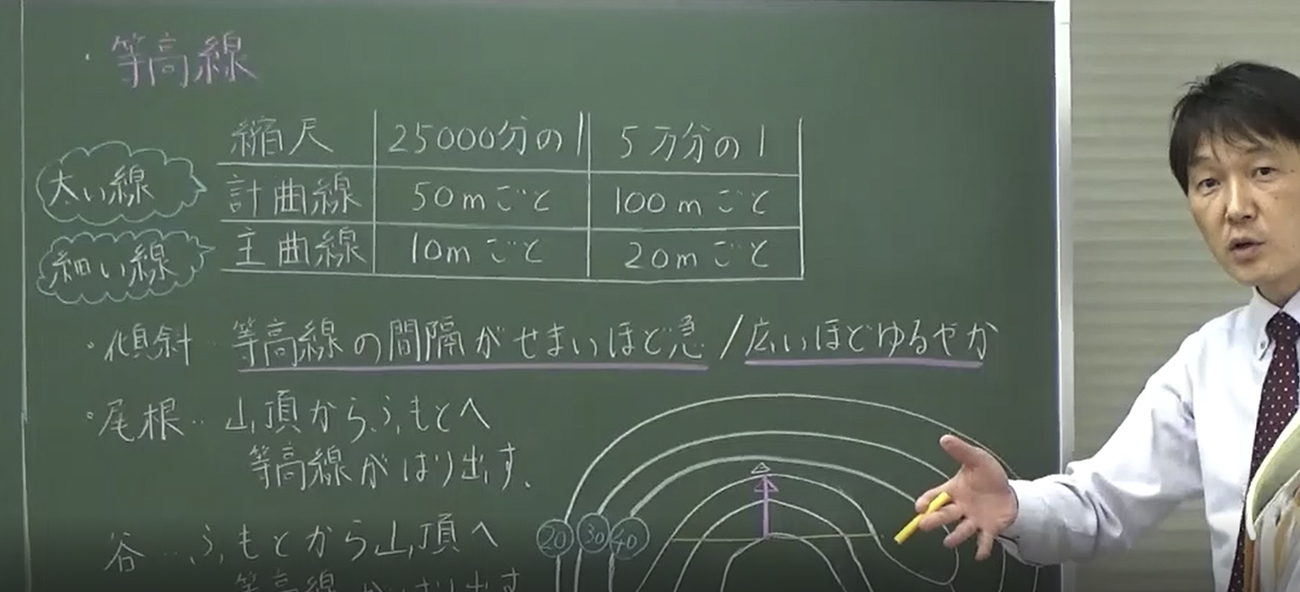 ・等高線
縮尺 25000分の1 5万分の1
太い線 計曲線 50mごと 100mごと
細い線 主曲線 10mごと 20mごと
・傾斜…等高線の間隔がせまいほど急/広いほどゆるやか
・尾根…山頂からふもとへ
等高線がはり出す。
谷…ふもとから山頂へ
等高線がはり出す
20 30 40